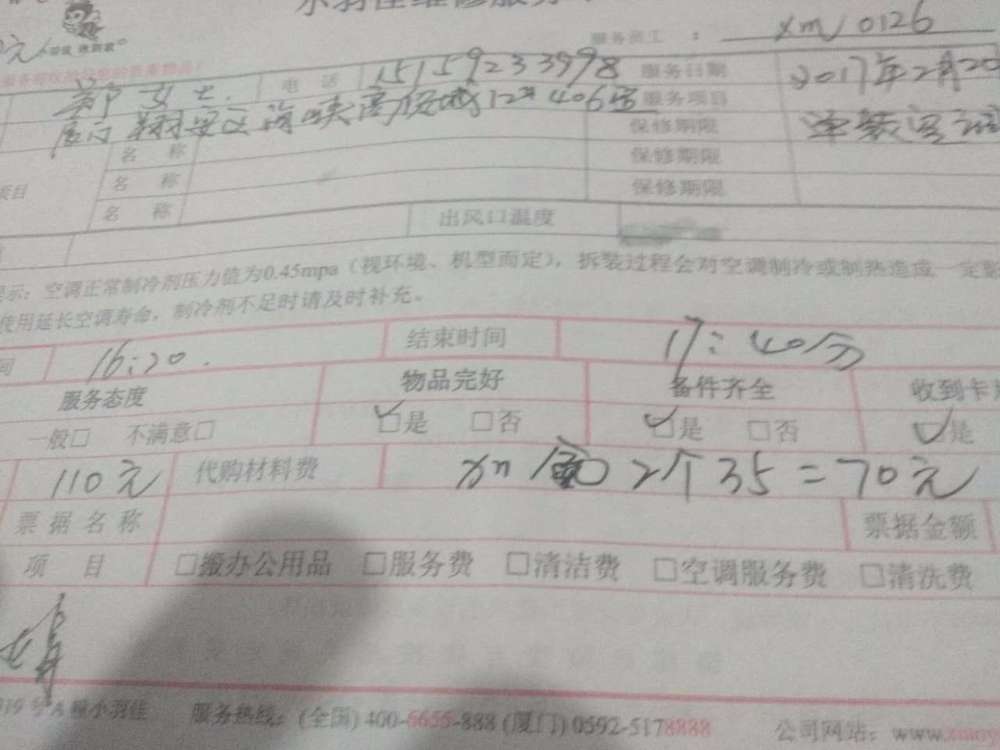 服务员工 : xm 0126
女士. 电话 15159233998 服务日期 2017年2月20
翔安区海峡高 12 406 服务项目
保修期限
名称 保修期限
名称 保修期限
名称
出风口温度
示：空调正常制冷剂压力值为0.45mpa（视环境、机型而定），拆装过程会对空调制冷或制热造成一定
使用延长空调寿命，制冷剂不足时请及时补充。
间 16:20. 结束时间 17:40分
服务态度 物品完好 备件齐全 收到卡
一般□ 不满意□ □是 □否 □是 □否 □是
110元 代购材料费 2个35=70元
票据名称 票据金额
项目 □搬办公用品 □服务费 □清洁费 □空调服务费 □清洗费
小羽佳 服务热线：(全国) 400-6655-888 (厦门) 0592-5178888 公司网站：www.